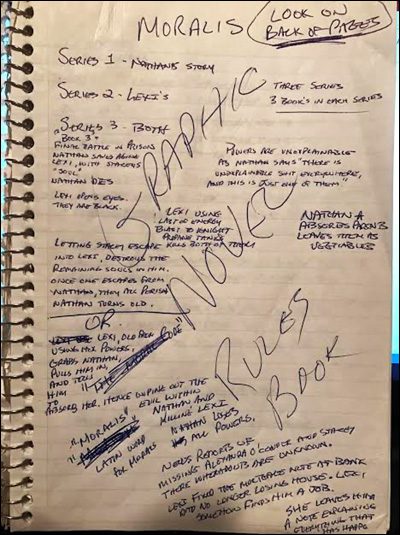 MORALIS
LOOK ON
BACK OF PAGES
SERIES 1 - NATHAN'S STORY
SERIES 2 - LEXI'S
THREE SERIES
3 BOOK'S IN EACH SERIES
SERIES 3 - BOTH
"BOOK 3"
FINAL BATTLE IN PRISON
NATHAN SAVES
LEXI, WITH STACEYS
"SOUL"
NATHAN DIES
LEXI OPENS EYES.
THEY ARE BLACK.
POWERS ARE UNEXPLAINABLE
AS NATHAN SAYS "THERE IS
UNEXPLAINABLE SHIT EVERYWHERE,
AND THIS IS JUST ONE OF THEM"
GRAPHIC
NOVEL
LEXI USING
LAST OF ENERGY
BLAST TO
PROPANE TANKS
KILLS BOTH OF THEM
NATHAN
ABSORBS PARENTS
LEAVES THEM AS
VEGETABLES
LETTING STACEY ESCAPE
INTO LEXI, DESTROYS THE
REMAINING SOULS IN HIM.
ONCE ONE ESCAPES FROM
NATHAN, THEY ALL PERISH
NATHAN TURNS OLD.
OR
LEXI, OLD
USING HIS POWERS,
GRABS NATHAN,
PULLS HIM IN,
AND
HIM
TO
ABSORB HER. HENCE WIPING OUT THE
EVIL WITHIN
NATHAN AND
KILLING LEXI
NATHAN LOSES
ALL POWERS.
RULES
BOOK
"MORALIS"
LATIN WORD
FOR MORALS
NEWS REPORTS OF
MISSING ALEXANDRA O'CONNOR AND STACEY
THERE WHEREABOUTS ARE UNKNOWN.
LEXI FIXED THE MORTGAGE NOTE AT BANK
DAD NO LONGER LOSING HOUSE. LEXI
SOMEHOW FINDS HIM A JOB.
SHE LEAVES HIM
A NOTE EXPLAINING
EVERYTHING THAT
HAS